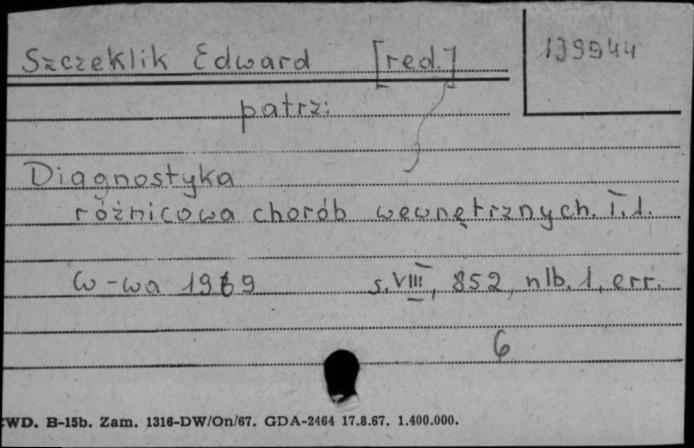 Szczeklik Edward [red.]
139944
patrz:
Diagnostyka
różnicowa chorób wewnętrznych. T.1.
W-wa 1969 s. VIII, 852, nlb. 1, err.
6
WD. B-15b. Zam. 1316-DW/On/67. GDA-2464 17.8.67. 1.400.000.